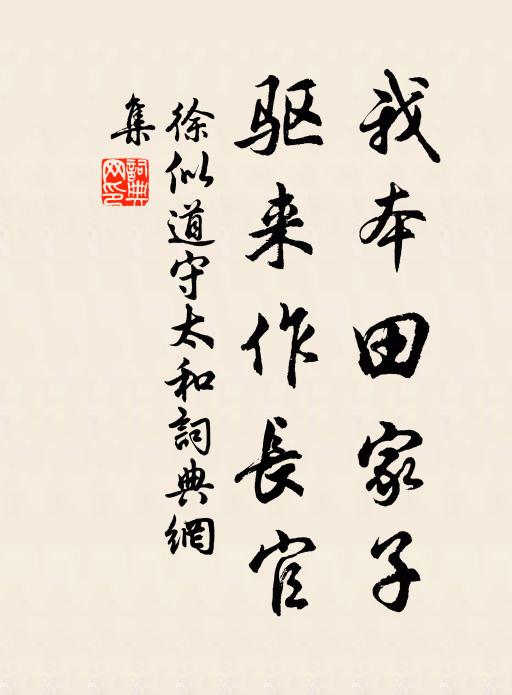 我本田家子
驱来作長官
徐似道守太和詞典網
集
詞典
网印